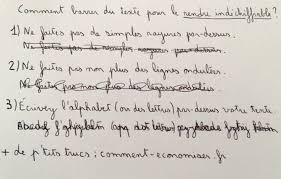 Comment barrer du texte pour le rendre indéchiffrable ?
1) Ne faites pas de simples rayures par-dessus.
Ne faites pas de simples rayures par-dessus.
2) Ne faites pas non plus des lignes ondulées.
Ne faites pas non plus des lignes ondulées
3) Écrivez l'alphabet (ou des lettres) par-dessus votre texte.
+ de p'tits trucs : comment-economiser.fr